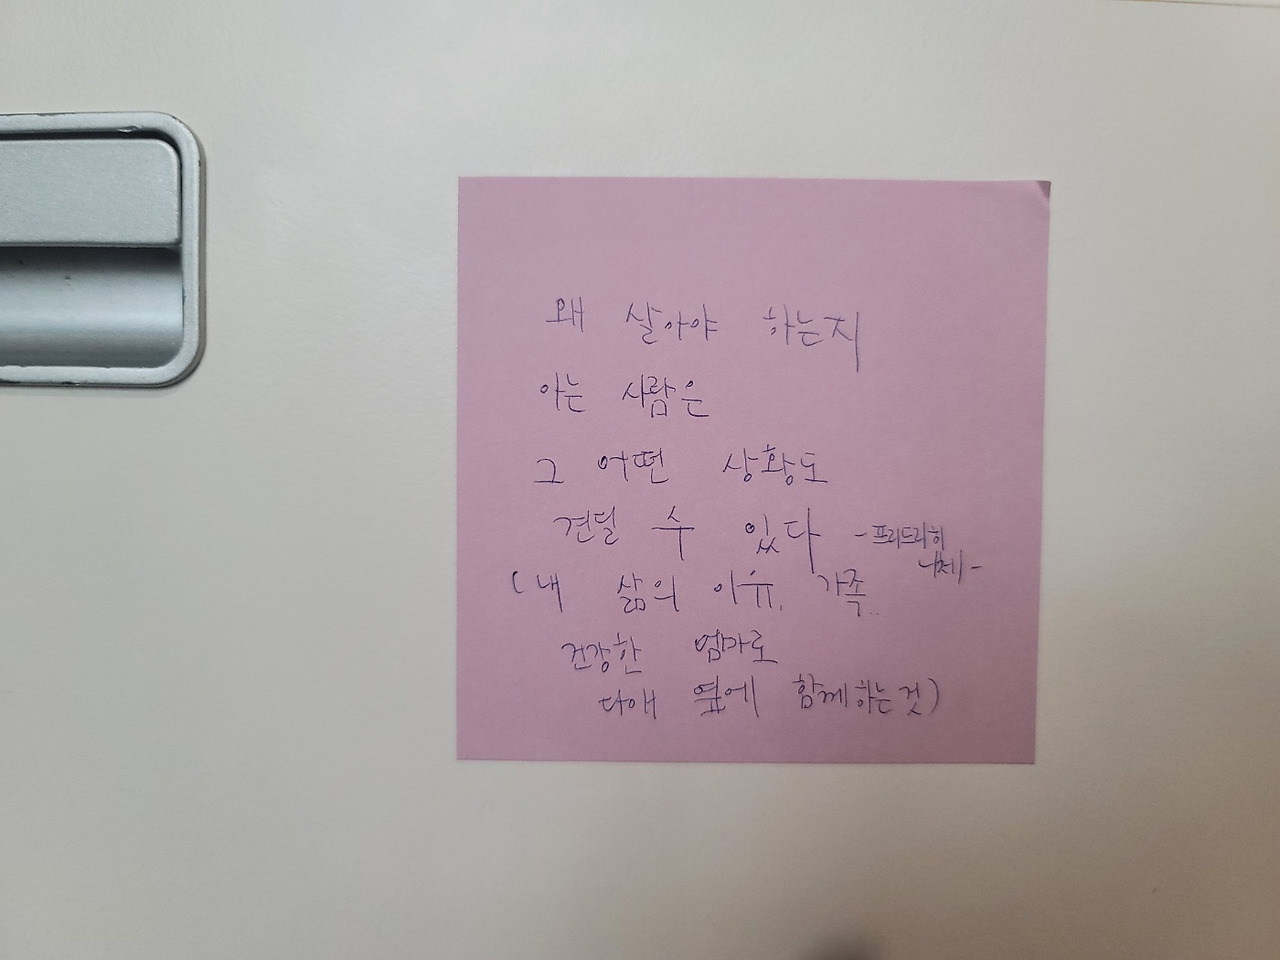 왜 살아야 하는지
아는 사람은
그 어떤 상황도
견딜 수 있다 -프리드리히
니체-
(내 삶의 이유, 가족..
건강한 엄마로
다애 옆에 함께하는 것)